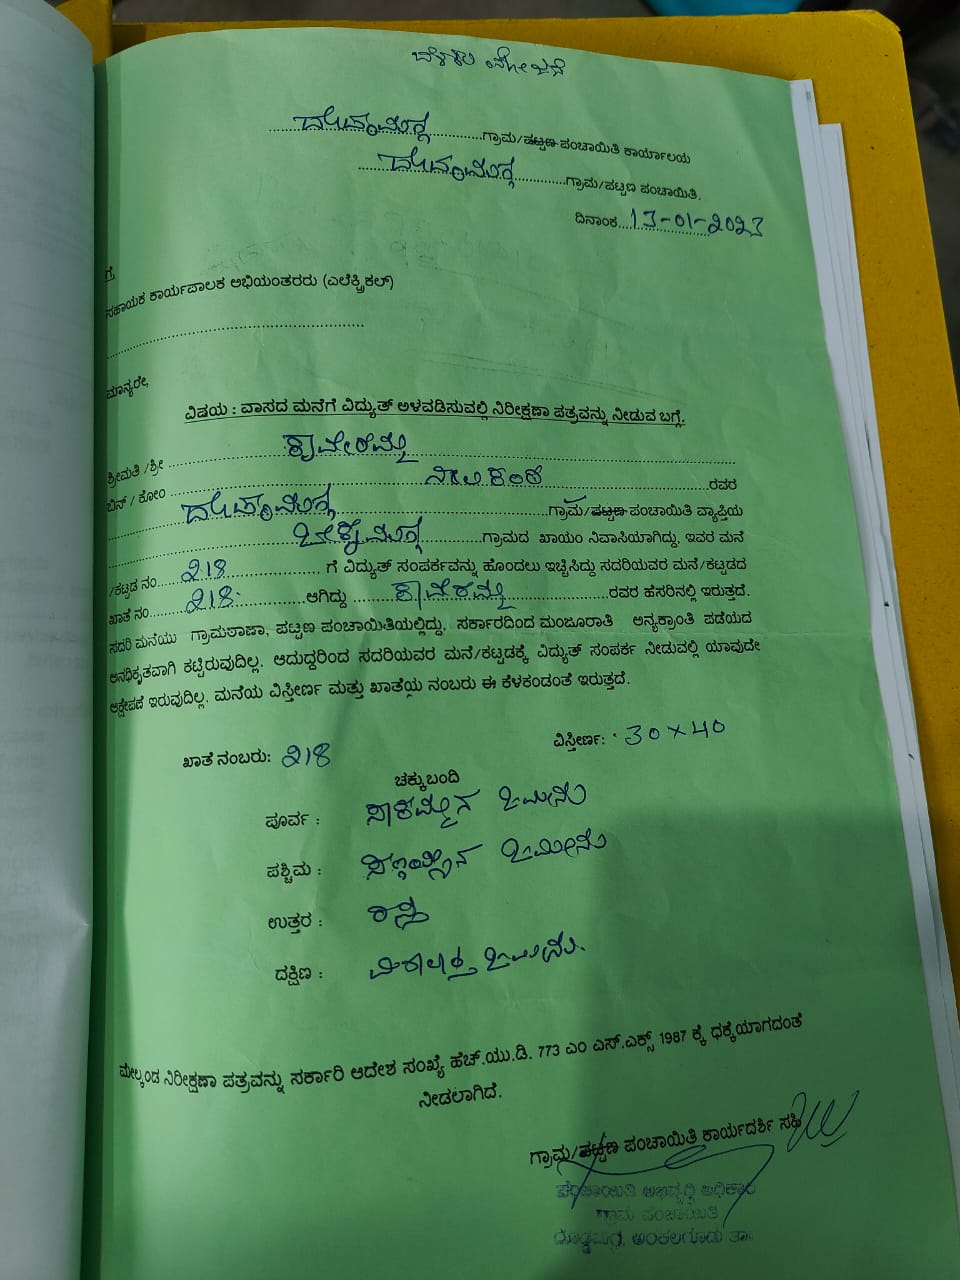 ಬೆಳಕು ಯೋಜನೆ
ಗ್ರಾಮ/ಪಟ್ಟಣ ಪಂಚಾಯಿತಿ ಕಾರ್ಯಾಲಯ
ಗ್ರಾಮ/ಪಟ್ಟಣ ಪಂಚಾಯಿತಿ.
ದಿನಾಂಕ 13-01-2023
ಗೆ,
ಸಹಾಯಕ ಕಾರ್ಯಪಾಲಕ ಅಭಿಯಂತರರು (ಎಲೆಕ್ಟ್ರಿಕಲ್)
ಮಾನ್ಯರೇ,
ವಿಷಯ : ವಾಸದ ಮನೆಗೆ ವಿದ್ಯುತ್ ಅಳವಡಿಸುವಲ್ಲಿ ನಿರೀಕ್ಷಣಾ ಪತ್ರವನ್ನು ನೀಡುವ ಬಗ್ಗೆ.
ಶ್ರೀಮತಿ /ಶ್ರೀ ಕಾವೇರಮ್ಮ
ಬಿನ್ / ಕೋಂ ನೀಲಕಂಠ ರವರ
ಗ್ರಾಮ/ಪಟ್ಟಣ ಪಂಚಾಯಿತಿ ವ್ಯಾಪ್ತಿಯ
ಗ್ರಾಮದ ಖಾಯಂ ನಿವಾಸಿಯಾಗಿದ್ದು, ಇವರ ಮನೆ
/ಕಟ್ಟಡ ನಂ. 218 ಗೆ ವಿದ್ಯುತ್ ಸಂಪರ್ಕವನ್ನು ಹೊಂದಲು ಇಚ್ಛಿಸಿದ್ದು ಸದರಿಯವರ ಮನೆ/ಕಟ್ಟಡದ
ಖಾತೆ ನಂ. 218 ಆಗಿದ್ದು ಕಾವೇರಮ್ಮ ರವರ ಹೆಸರಿನಲ್ಲಿ ಇರುತ್ತದೆ.
ಸದರಿ ಮನೆಯು ಗ್ರಾಮಠಾಣಾ, ಪಟ್ಟಣ ಪಂಚಾಯಿತಿಯಲ್ಲಿದ್ದು, ಸರ್ಕಾರದಿಂದ ಮಂಜೂರಾತಿ ಅನ್ಯಕ್ರಾಂತಿ ಪಡೆಯದ
ಅನಧಿಕೃತವಾಗಿ ಕಟ್ಟಿರುವುದಿಲ್ಲ. ಆದುದ್ದರಿಂದ ಸದರಿಯವರ ಮನೆ/ಕಟ್ಟಡಕ್ಕೆ ವಿದ್ಯುತ್ ಸಂಪರ್ಕ ನೀಡುವಲ್ಲಿ ಯಾವುದೇ
ಆಕ್ಷೇಪಣೆ ಇರುವುದಿಲ್ಲ. ಮನೆಯ ವಿಸ್ತೀರ್ಣ ಮತ್ತು ಖಾತೆಯ ನಂಬರು ಈ ಕೆಳಕಂಡಂತೆ ಇರುತ್ತದೆ.
ಖಾತೆ ನಂಬರು: 218 ವಿಸ್ತೀರ್ಣ: 30 x 40
ಚಕ್ಕುಬಂದಿ
ಪೂರ್ವ : ಜಮೀನು
ಪಶ್ಚಿಮ : ಜಮೀನು
ಉತ್ತರ : ರಸ್ತೆ
ದಕ್ಷಿಣ : ಜಮೀನು.
ಮೇಲ್ಕಂಡ ನಿರೀಕ್ಷಣಾ ಪತ್ರವನ್ನು ಸರ್ಕಾರಿ ಆದೇಶ ಸಂಖ್ಯೆ ಹೆಚ್.ಯು.ಡಿ. 773 ಎಂ ಎಸ್.ಎಕ್ಸ್ 1987 ಕ್ಕೆ ಧಕ್ಕೆಯಾಗದಂತೆ
ನೀಡಲಾಗಿದೆ.
ಗ್ರಾಮ/ಪಟ್ಟಣ ಪಂಚಾಯಿತಿ ಕಾರ್ಯದರ್ಶಿ ಸಹಿ
ಪಂಚಾಯಿತಿ ಅಭಿವೃದ್ಧಿ ಅಧಿಕಾರಿ
ಗ್ರಾಮ ಪಂಚಾಯಿತಿ